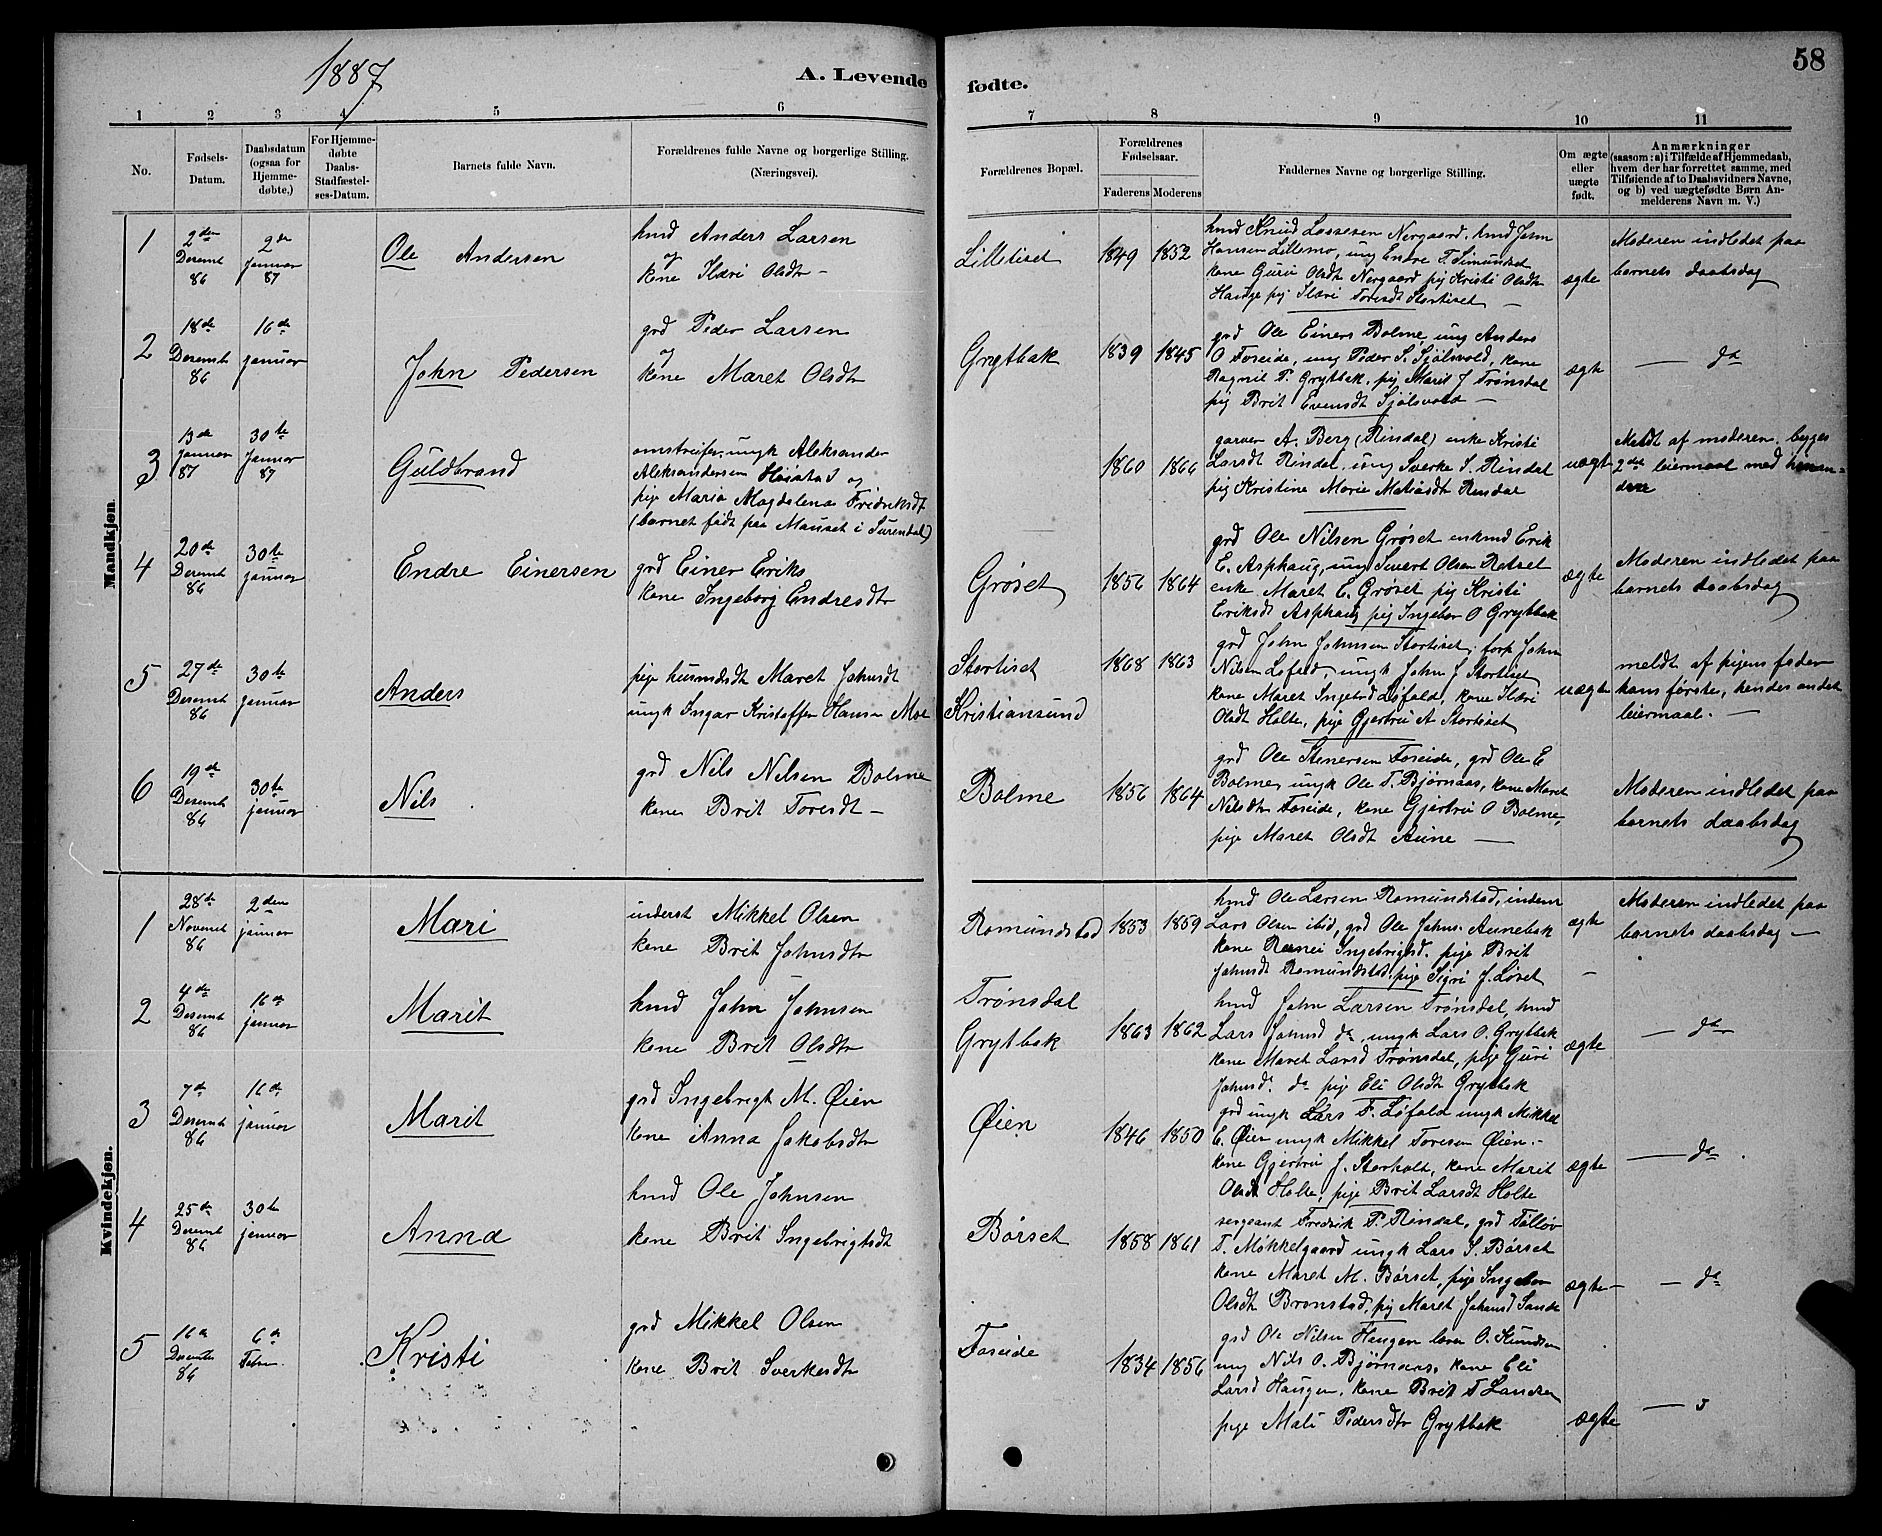 1887
A. Levende
fødte.
58
1 2 3 4 5 6 7 8 9 10 11
No.
Fødsels-Datum.
Daabsdatum (ogsaa for Hjemme-døbte,)
For Hjemme-døbte Daabs-Stadfæstel-ses-Datum.
Barnets fulde Navn.
Forældrenes fulde Navne og borgerlige Stilling.
(Næringsvei).
Forældrenes Bopæl.
Forældrenes Fødselsaar.
Faderens Moderens
Faddernes Navne og borgerlige Stilling.
Om ægte eller uægte født.
Anmærkninger
(saasom: a) i Tilfælde af Hjemmedaab,
hvem der har forrettet samme, med
Tilføiende af to Daabsvidners Navne,
og b) ved uægtefødte Børn An-
melderens Navn m. V.)
Mandkjøn
1
2den Desemt 86
2de januar 87
Ole Andersen
hmd Anders Larsen
og
kone Ilæri Olsdtr -
Lilletiset
1849 1852
hmd Knud Lassesen Nergaard, hmd John
Hansen Lillemo, ung Endre T. Simundset
kone Guru Olsdtr Nergaard pig Kristi Olsdtr
Hauge pij Ilæri Toresdt Stortiset
ægte
Moderen indledet paa
barnets daabsdag
2
18de Desemt 86
16de januar
John Pedersen
grd Peder Larsen
og
kone Maret Olsdtr
Grytbak
1839 1845
grd Ole Einers Bolme, ung Anders
O Foseide, ung Peder S. Sjølsvold, kone
Ragnil P. Grytbak, pig Marit J Trønsdal
pig Brit Evensdt Sjølsvold -
ægte
- da
3
13de Januar 87
30te Januar 87
Guldbrand
omstreifer, ungk Aleksander
Aleksandersen og
pige Maria Magdalena Fridriksdt
(barnet født paa Mauset i Surendal)
1860 1866
garver A. Berg (Rindal) enke Kristi
Larsdt Rindal, ung Sverke S. Rindal
pig Kristine Marie Matiasdt Rindal
uægt
Meldt af moderen. begges
2det leiermaal med hinan-
dre
4
20de Desemt 86
30te januar
Endre Einersen
grd Einer Eriks
kone Ingeborg Endresdtr
Grøset
1856 1864
grd Ole Nilsen Grøset enkmd Erik
E. Asphaug, ung Sivert Olsen Retset
enke Maret E. Grøset pig Kristi
Eriksdt Asphaug pig Ingebor O Grytbak
ægte
Moderen indledet paa
barnets daabsdag
5
27de Desemt 86
30te januar
Anders
pige husmdsdt Maret Johnsdt
ungk Ingar Kristoffer Hansen Moe
Stortiset
Kristiansund
1868 1863
grd John Johnsen Stortiset, forp John
Nilsen Løfald, ungk John J Stortiset
kone Maret Ingebrd Løfald, kone Ilæri
Olsdt Holte, pige Gjertru A Stortiset
uægte
meldt af pigens fader
hans første, hendes andet
leiermaal. -
6
19de Desemt 86
30te januar
Nils
grd Nils Nilsen Bolme
kone Brit Toresdt -
Bolme
1856 1864
grd Ole Stenersen Foseide, grd Ole E
Bolme, ungk Ole T. Bjørnaas, kone Maret
Nilsdtr Foseide, kone Gjertru O Bolme,
pige Maret Olsdt Aune -
Moderen indledet paa
barnets daabsdag
Kvindekjøn.
1
28de Novemt 86
2den januar
Mari
inderst Mikkel Olsen
kone Brit Johnsdtr
Romundstad
1853 1859
hmd Ole Larsen Romundstad, inders
Lars Olsen ibid, grd Ole Johns Aunebak
kone Rannei Ingebrigtsd. pige Brit
Johnsdt Romundstad, pige Sigri J. Løset
ægte
Moderen indledet paa
barnets daabsdag -
2
4de Desemt 86
16de januar
Marit
hmd John Johnsen
kone Brit Olsdtr
Trønsdal
Grytbak
1863 1862
hmd John Larsen Trønsdal, hmd
Lars Johnsd da, ungk Lars O. Grytbak
kone Maret Larsd Trønsdal, pige Guri
Johnsd. da pig Eli Olsdt Grytbak
ægte
- da
3
7de Desemt 86
16de januar
Marit
grd Ingebrigt M. Øien
kone Anna Jakobsdtr
Øien
1846 1850
grd ungk Lars F. Løfald ungk Mikkel
E. Øien ungk Mikkel Toresen Øien.-
kone Gjertru J. Storholt, kone Marit
Olsdt Holte, pige Brit Larsdt Holte
ægte
- da
4
25de Desemt 86
30te januar
Anna
hmd Ole Johnsen
kone Brit Ingebrigtsdt
Børset
1858 1861
sergeant Fredrik P. Rindal, grd Tølløv
T. Møkkelgaard ungk Lars S. Børset
kone Maret M. Børset, pige Ingebor
Olsdt Bronstad, pig Maret Johnsd Sande
ægte-
- da
5
16de Desember 86
6de Febr.
Kristi
grd Mikkel Olsen
kone Brit Sverkesdtr
Foseide
1834 1856
grd Ole Nilsen Haugen lærer O. Knudsen
ung Nils O. Bjørnaas, kone Eli
Larsd Haugen, kone Brit T Landsem
pige Mali Pedersdtr Grytbak
ægte